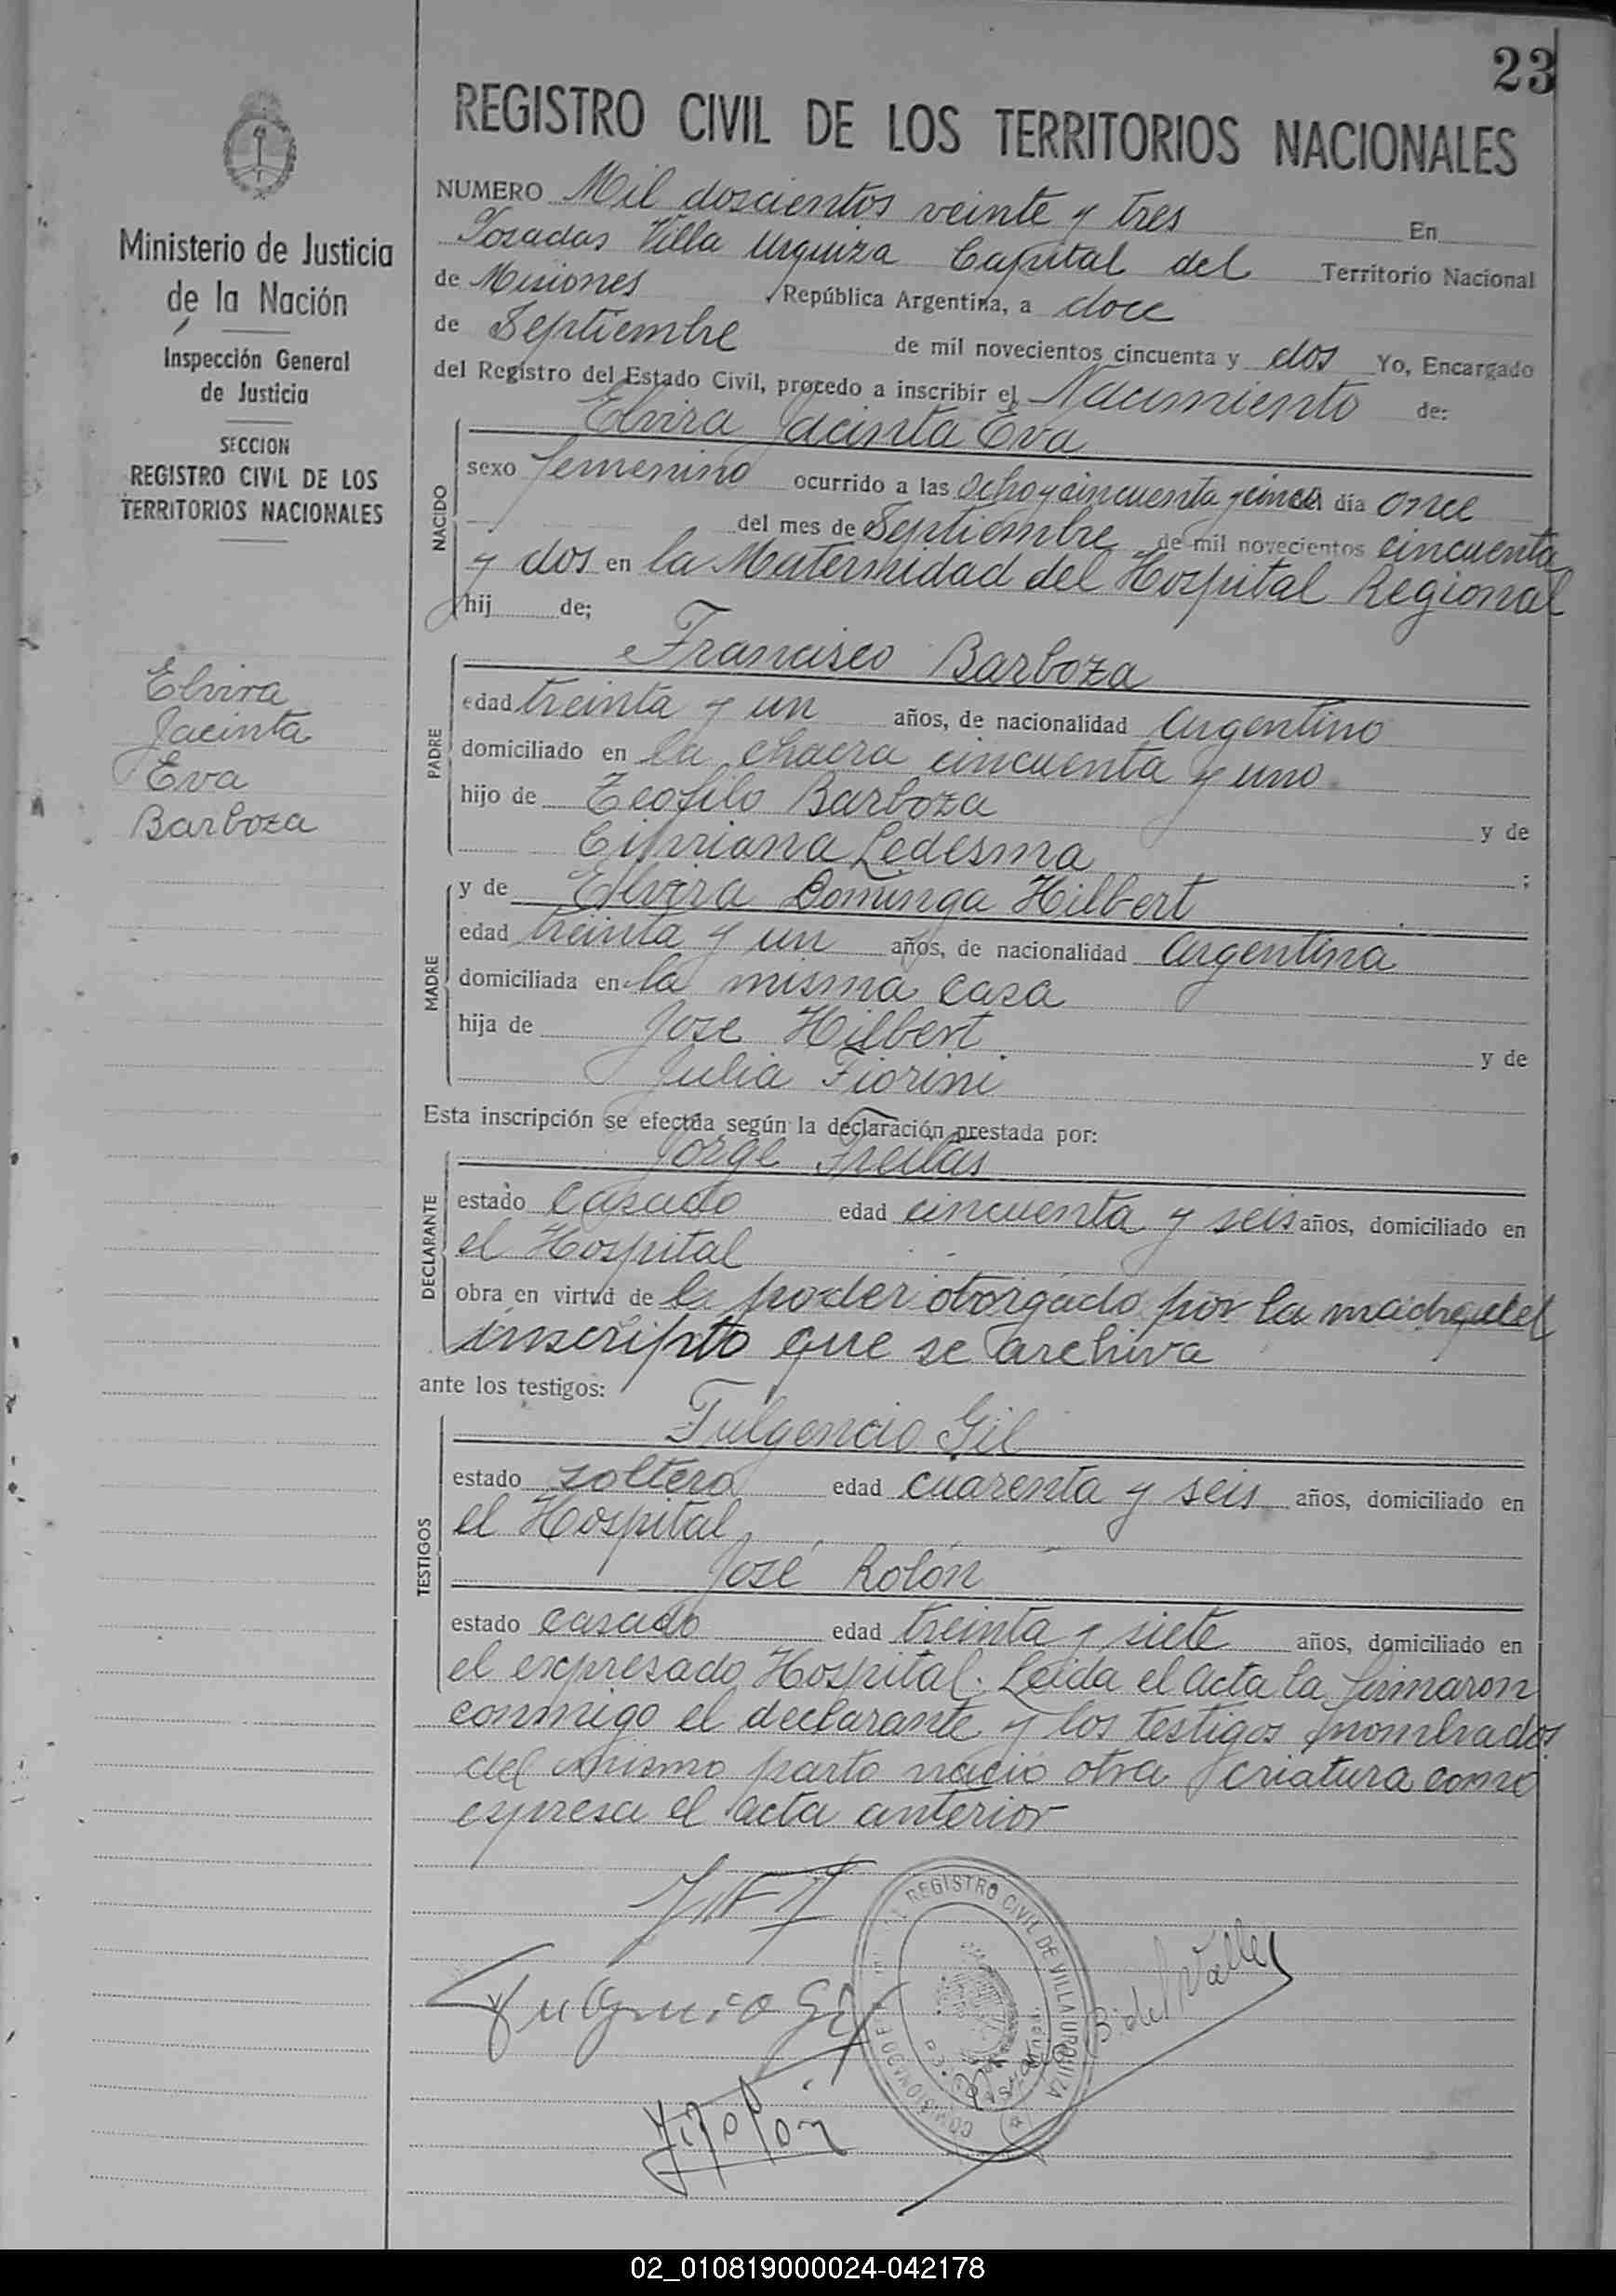 23
REGISTRO CIVIL DE LOS TERRITORIOS NACIONALES
Ministerio de Justicia
de la Nación
Inspección General
de Justicia
SECCION
REGISTRO CIVIL DE LOS
TERRITORIOS NACIONALES
Elvira
Jacinta
Eva
Barboza
NUMERO Mil doscientos veinte y tres En
Posadas Villa Urquiza Capital del Territorio Nacional
de Misiones, República Argentina, a doce
de Septiembre de mil novecientos cincuenta y dos Yo, Encargado
del Registro del Estado Civil, procedo a inscribir el Nacimiento de:
NACIDO
Elvira Jacinta Eva
sexo femenino ocurrido a las ocho y cincuenta y cinco día once
del mes de Septiembre de mil novecientos cincuenta
y dos en la Maternidad del Hospital Regional
hij de;
PADRE
Francisco Barboza
edad treinta y un años, de nacionalidad Argentino
domiciliado en la chacra cincuenta y uno
hijo de Teofilo Barboza y de
Cipriana Ledesma ;
MADRE
y de Elvira Dominga Hilbert
edad treinta y un años, de nacionalidad Argentina
domiciliada en la misma casa
hija de Jose Hilbert y de
Julia Fiorini
Esta inscripción se efectúa según la declaración prestada por:
DECLARANTE
Jorge Freitas
estado casado edad cincuenta y seis años, domiciliado en
el Hospital
obra en virtud de poder otorgado por la madre del
inscripto que se archiva
ante los testigos:
TESTIGOS
Fulgencio Gil
estado soltero edad cuarenta y seis años, domiciliado en
el Hospital
José Rolón
estado casado edad treinta y siete años, domiciliado en
el expresado Hospital. Leida el acta la firmaron
conmigo el declarante y los testigos nombrados
del mismo parto nació otra criatura como
expresa el acta anterior
REGISTRO CIVIL DE VILLA URQUIZA
Fulgencio Gil
B. del Valle
J. Rolón
02_010819000024-042178